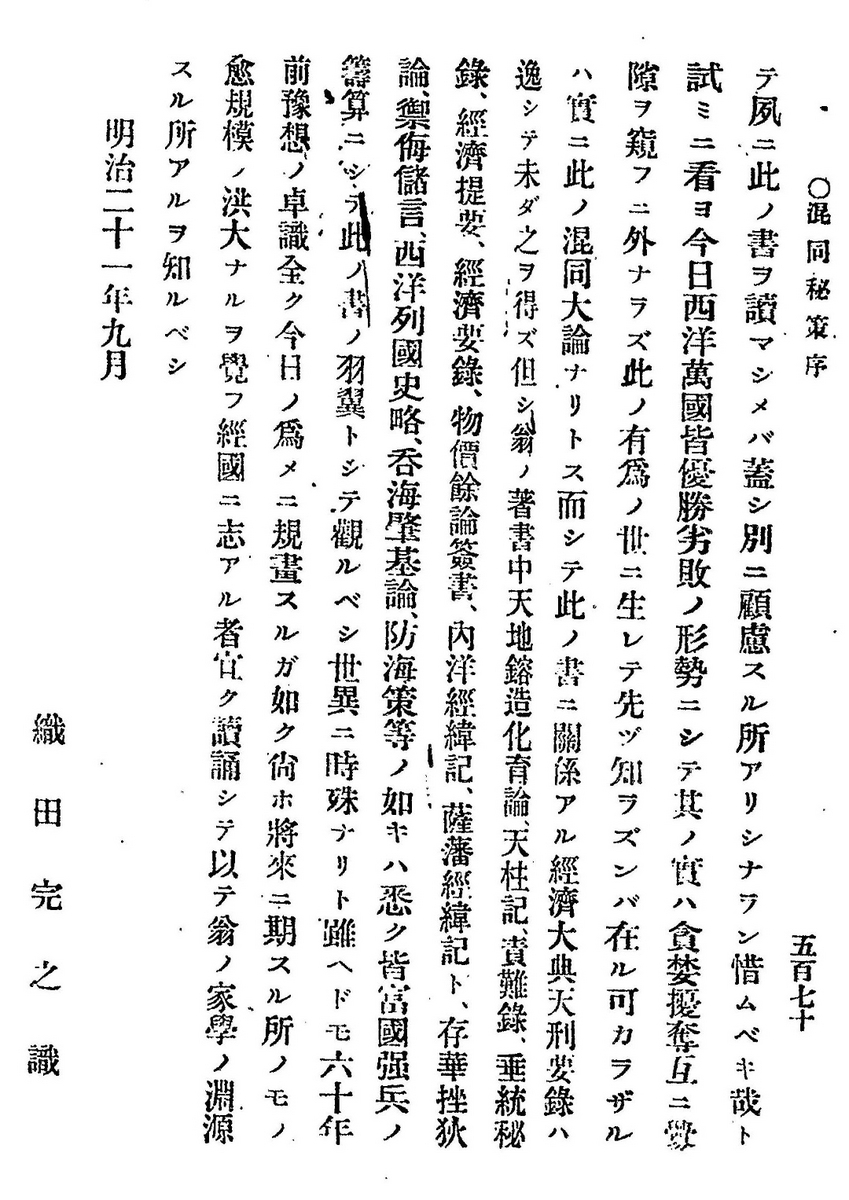 〇混同秘策序
五百七十
テ夙ニ此ノ書ヲ讀マシメバ蓋シ別ニ顧慮スル所アリシナラン惜ムベキ哉ト
試ミニ看ヨ今日西洋萬國皆優勝劣敗ノ形勢ニシテ其ノ實ハ貪婪擾奪互ニ釁
隙ヲ窺フニ外ナラズ此ノ有爲ノ世ニ生レテ先ヅ知ラズンバ在ル可カラザル
ハ實ニ此ノ混同大論ナリトス而シテ此ノ書ニ關係アル經濟大典天刑要錄ハ
逸シテ未ダ之ヲ得ズ但シ翁ノ著書中天地鎔造化育論、天柱記、責難錄、垂統秘
錄、經濟提要、經濟要錄、物價餘論簽書、內洋經緯記、薩藩經緯記ト、存華挫狄
論、禦侮儲言、西洋列國史略、呑海肇基論、防海策等ノ如キハ悉ク皆富國强兵ノ
籌算ニシテ此ノ書ノ羽翼トシテ觀ルベシ世異ニ時殊ナリト雖ヘドモ六十年
前豫想ノ卓識全ク今日ノ爲メニ規畫スルガ如ク尙ホ將來ニ期スル所ノモノ
愈規模ノ洪大ナルヲ覺フ經國ニ志アル者宜ク讀誦シテ以テ翁ノ家學ノ淵源
スル所アルヲ知ルベシ
明治二十一年九月
織田完之識